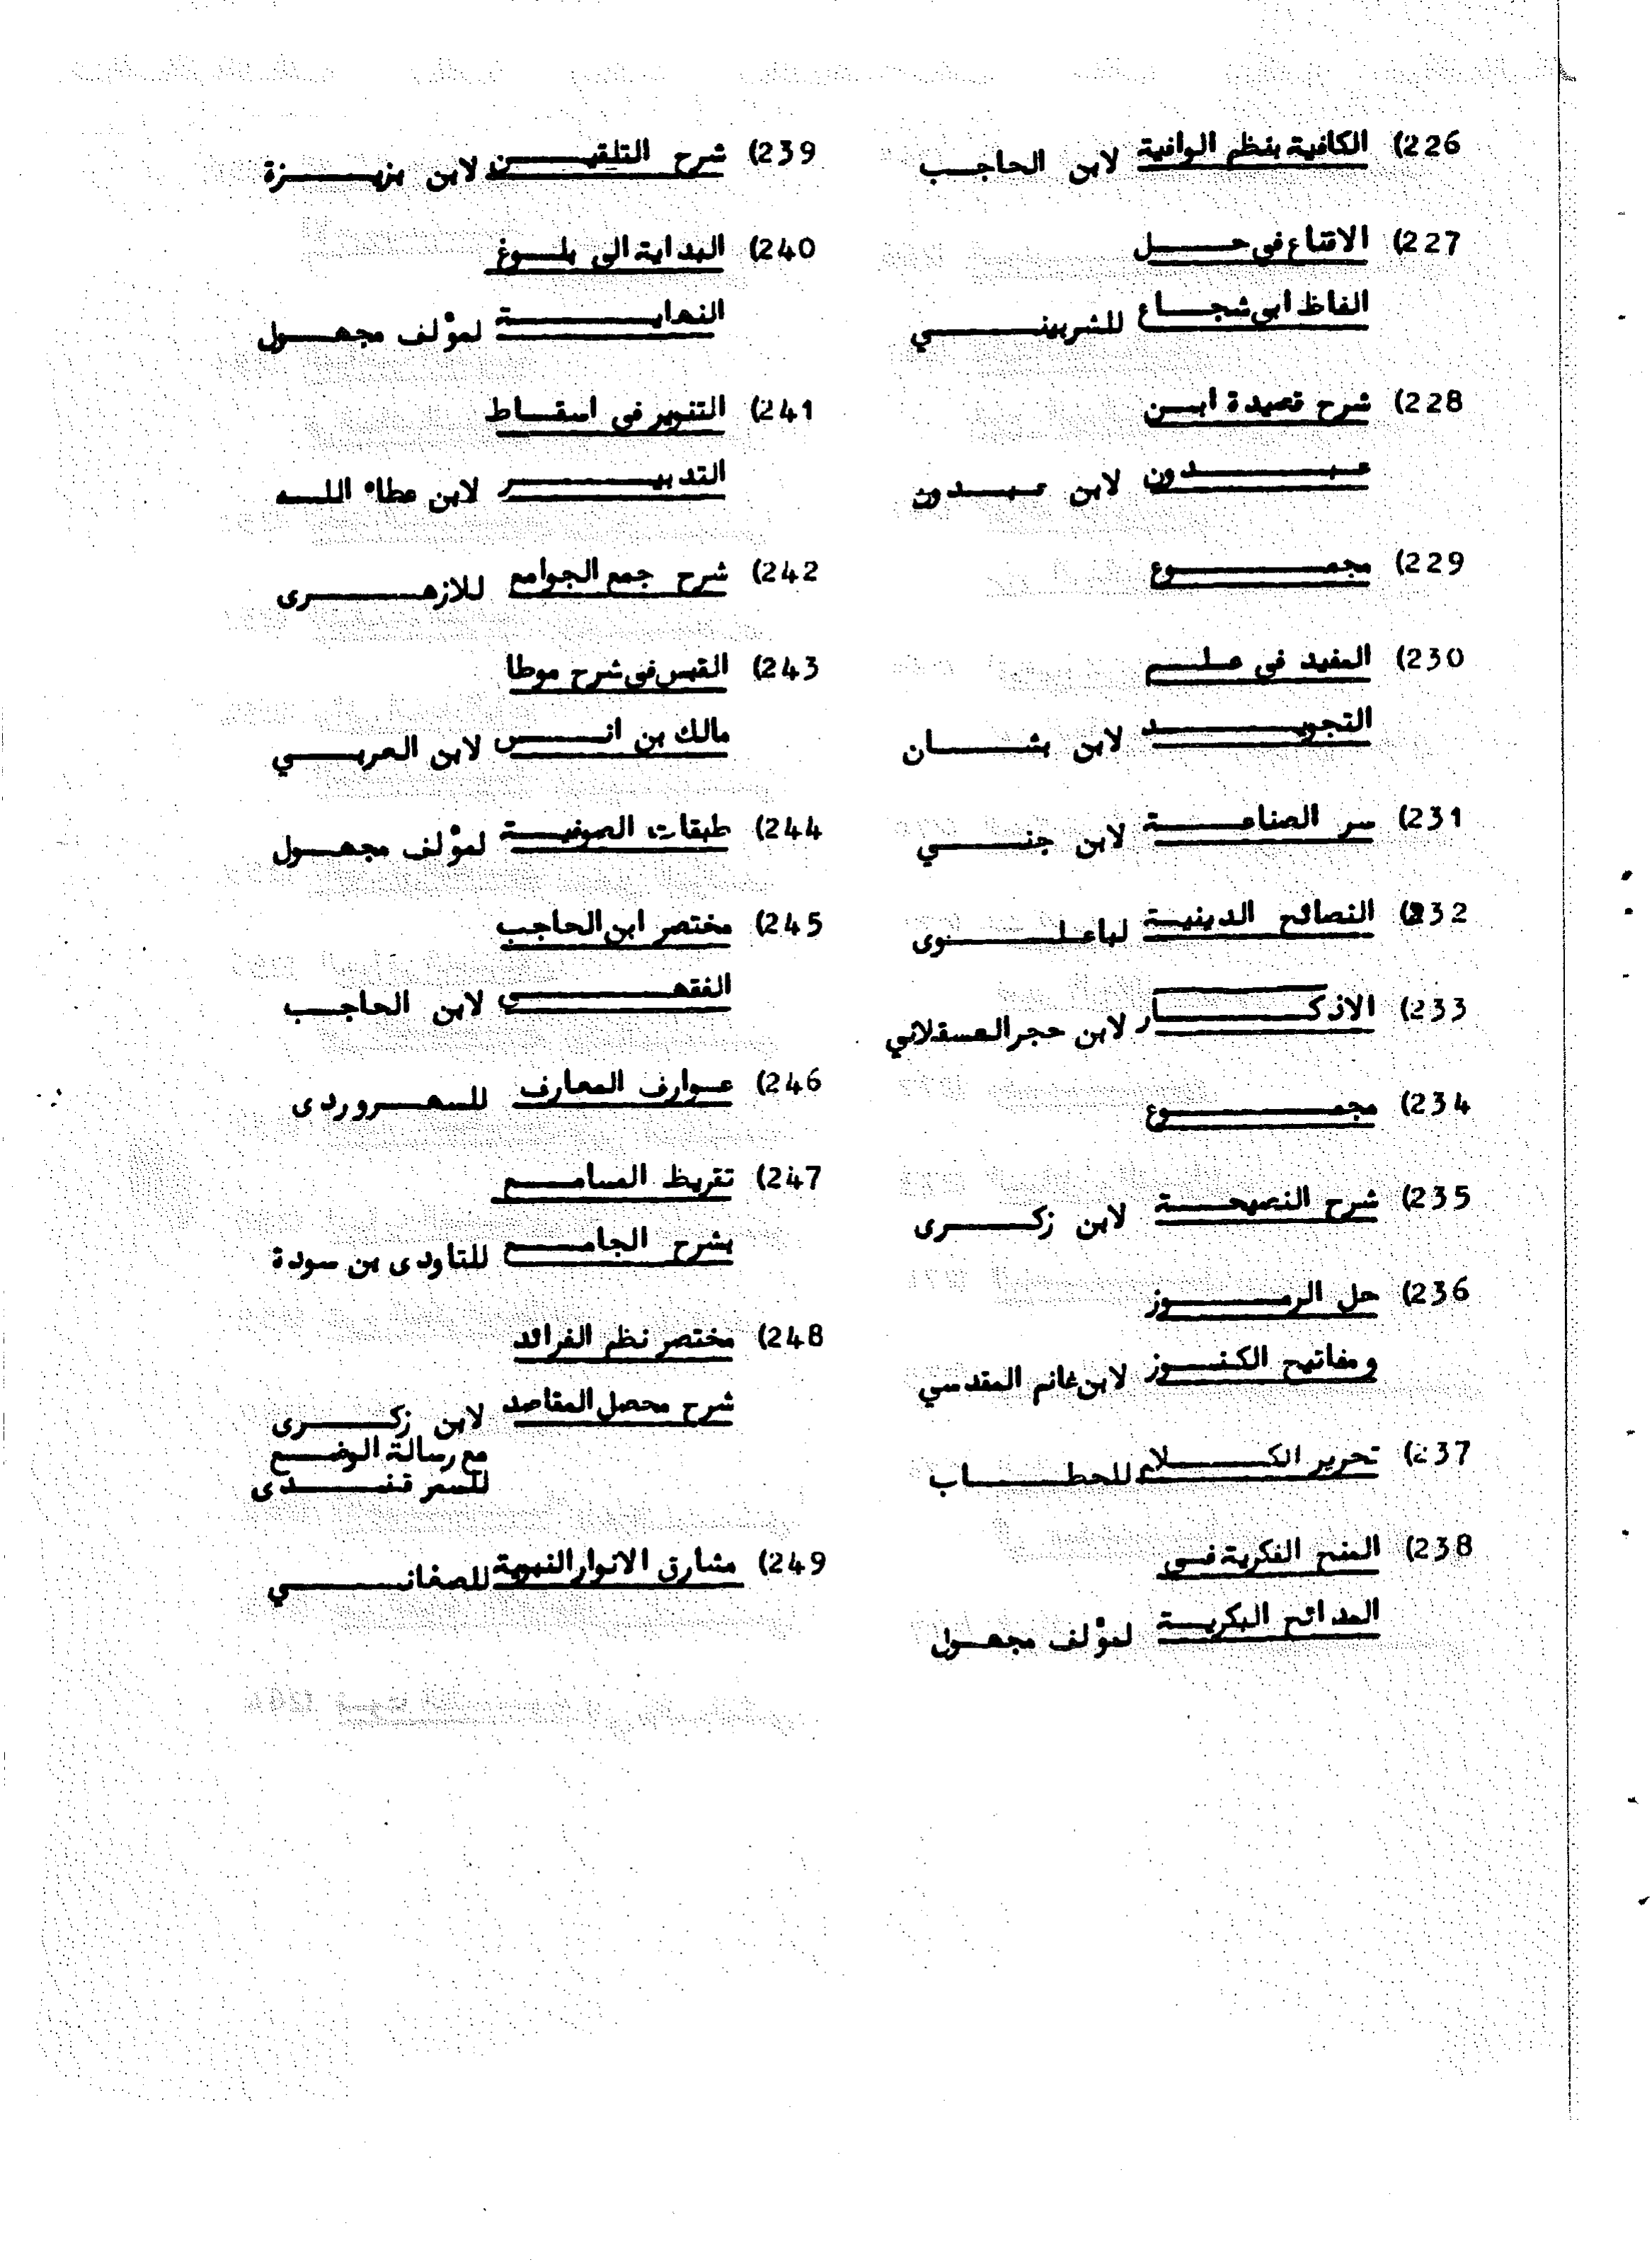 226) الكافية بنظم الوافية لابن الحاجب
227) الاقناع في حل
الفاظ ابي شجاع للشربيني
228) شرح قصيدة ابن
عبدون لابن عبدون
229) مجموع
230) المفيد في علم
التجويد لابن بشان
231) سر الصناعة لابن جني
232) النصائح الدينية لباعلوى
233) الاذكار لابن حجر العسقلاني
234) مجموع
235) شرح النصيحة لابن زكرى
236) حل الرموز
ومفاتيح الكنوز لابن غانم المقدسي
237) تحرير الكلام للحطاب
238) المنح الفكرية في
المدائح البكرية لمؤلف مجهول
239) شرح التلقين لابن بزيزة
240) البداية الى بلوغ
النهاية لمؤلف مجهول
241) التنوير في اسقاط
التدبير لابن عطاء الله
242) شرح جمع الجوامع للازهرى
243) القبس في شرح موطا
مالك بن انس لابن العربي
244) طبقات الصوفية لمؤلف مجهول
245) مختصر ابن الحاجب
الفقهي لابن الحاجب
246) عوارف المعارف للسهروردى
247) تقريظ المسامع
بشرح الجامع للتاودى بن سودة
248) مختصر نظم الفرائد
شرح محصل المقاصد لابن زكرى
مع رسالة الوضع
للسمرقندى
249) مشارق الانوار النبوية للصغاني